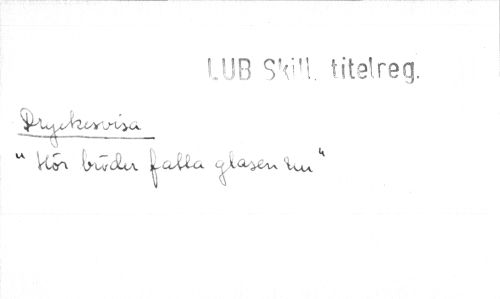 LUB Skill. titelreg.
Dryckesvisa
" Hör bröder fatta glasen nu "